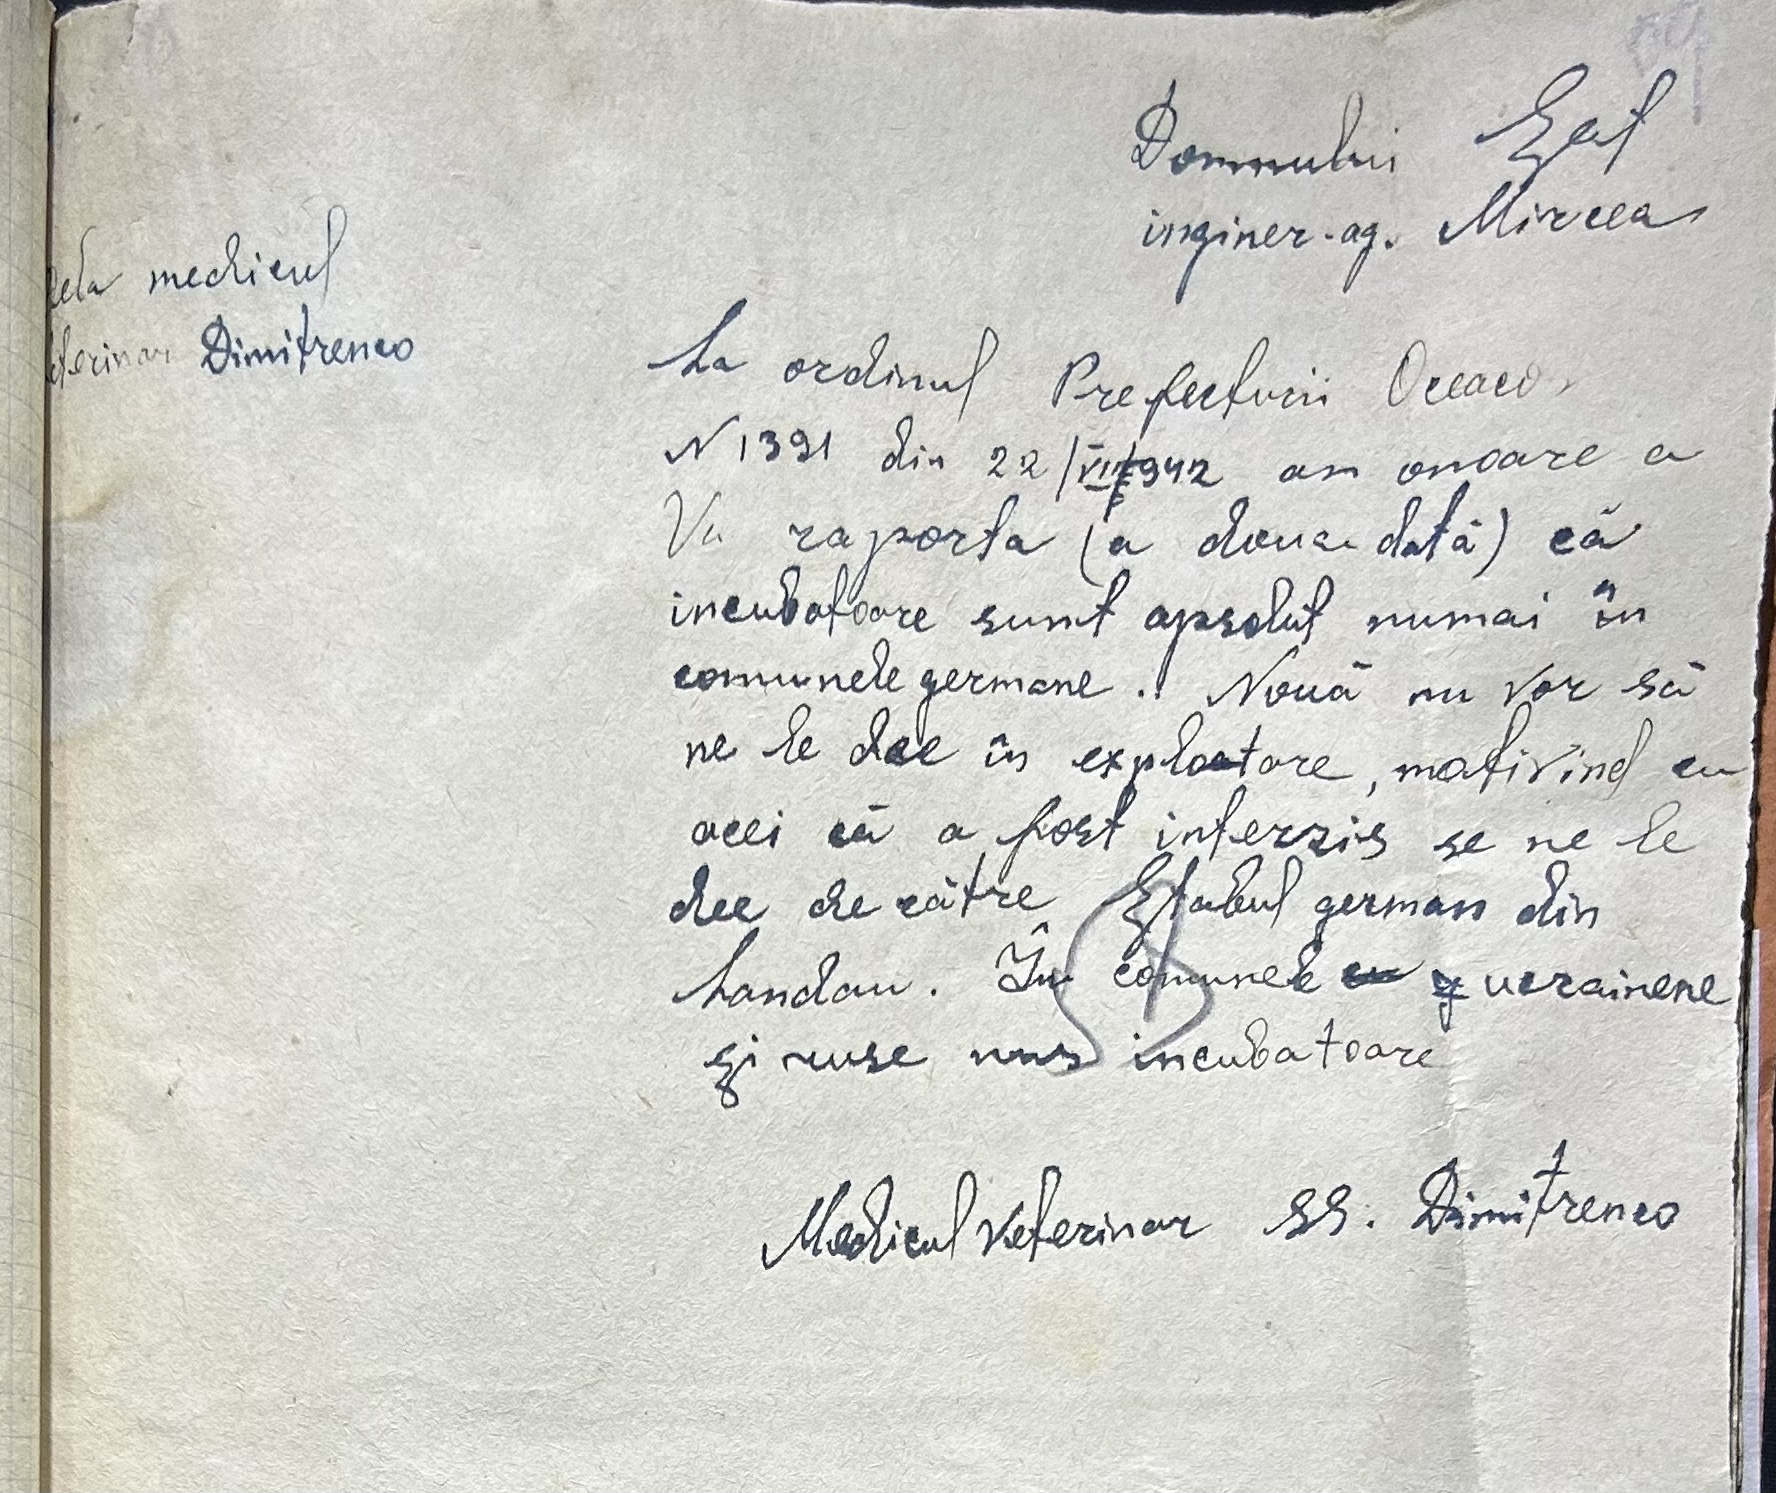 Domnului Șef
inginer-ag. Mircea
dela medicul
veterinar Dimitrenco
La ordinul Prefecturii Oceacov
N 1391 din 22/VII 942 am onoare a
Vă raporta (a doua dată) că
incubatoare sunt apsolut numai în
comunele germane. Nouă nu vor să
ne le dee în exploatare, motivind cu
acei că a fost interzis se ne le
dee de către Ștabul german din
Landau. În comunele ucrainene
și ruse nus incubatoare
Medicul Veterinar SS. Dimitrenco